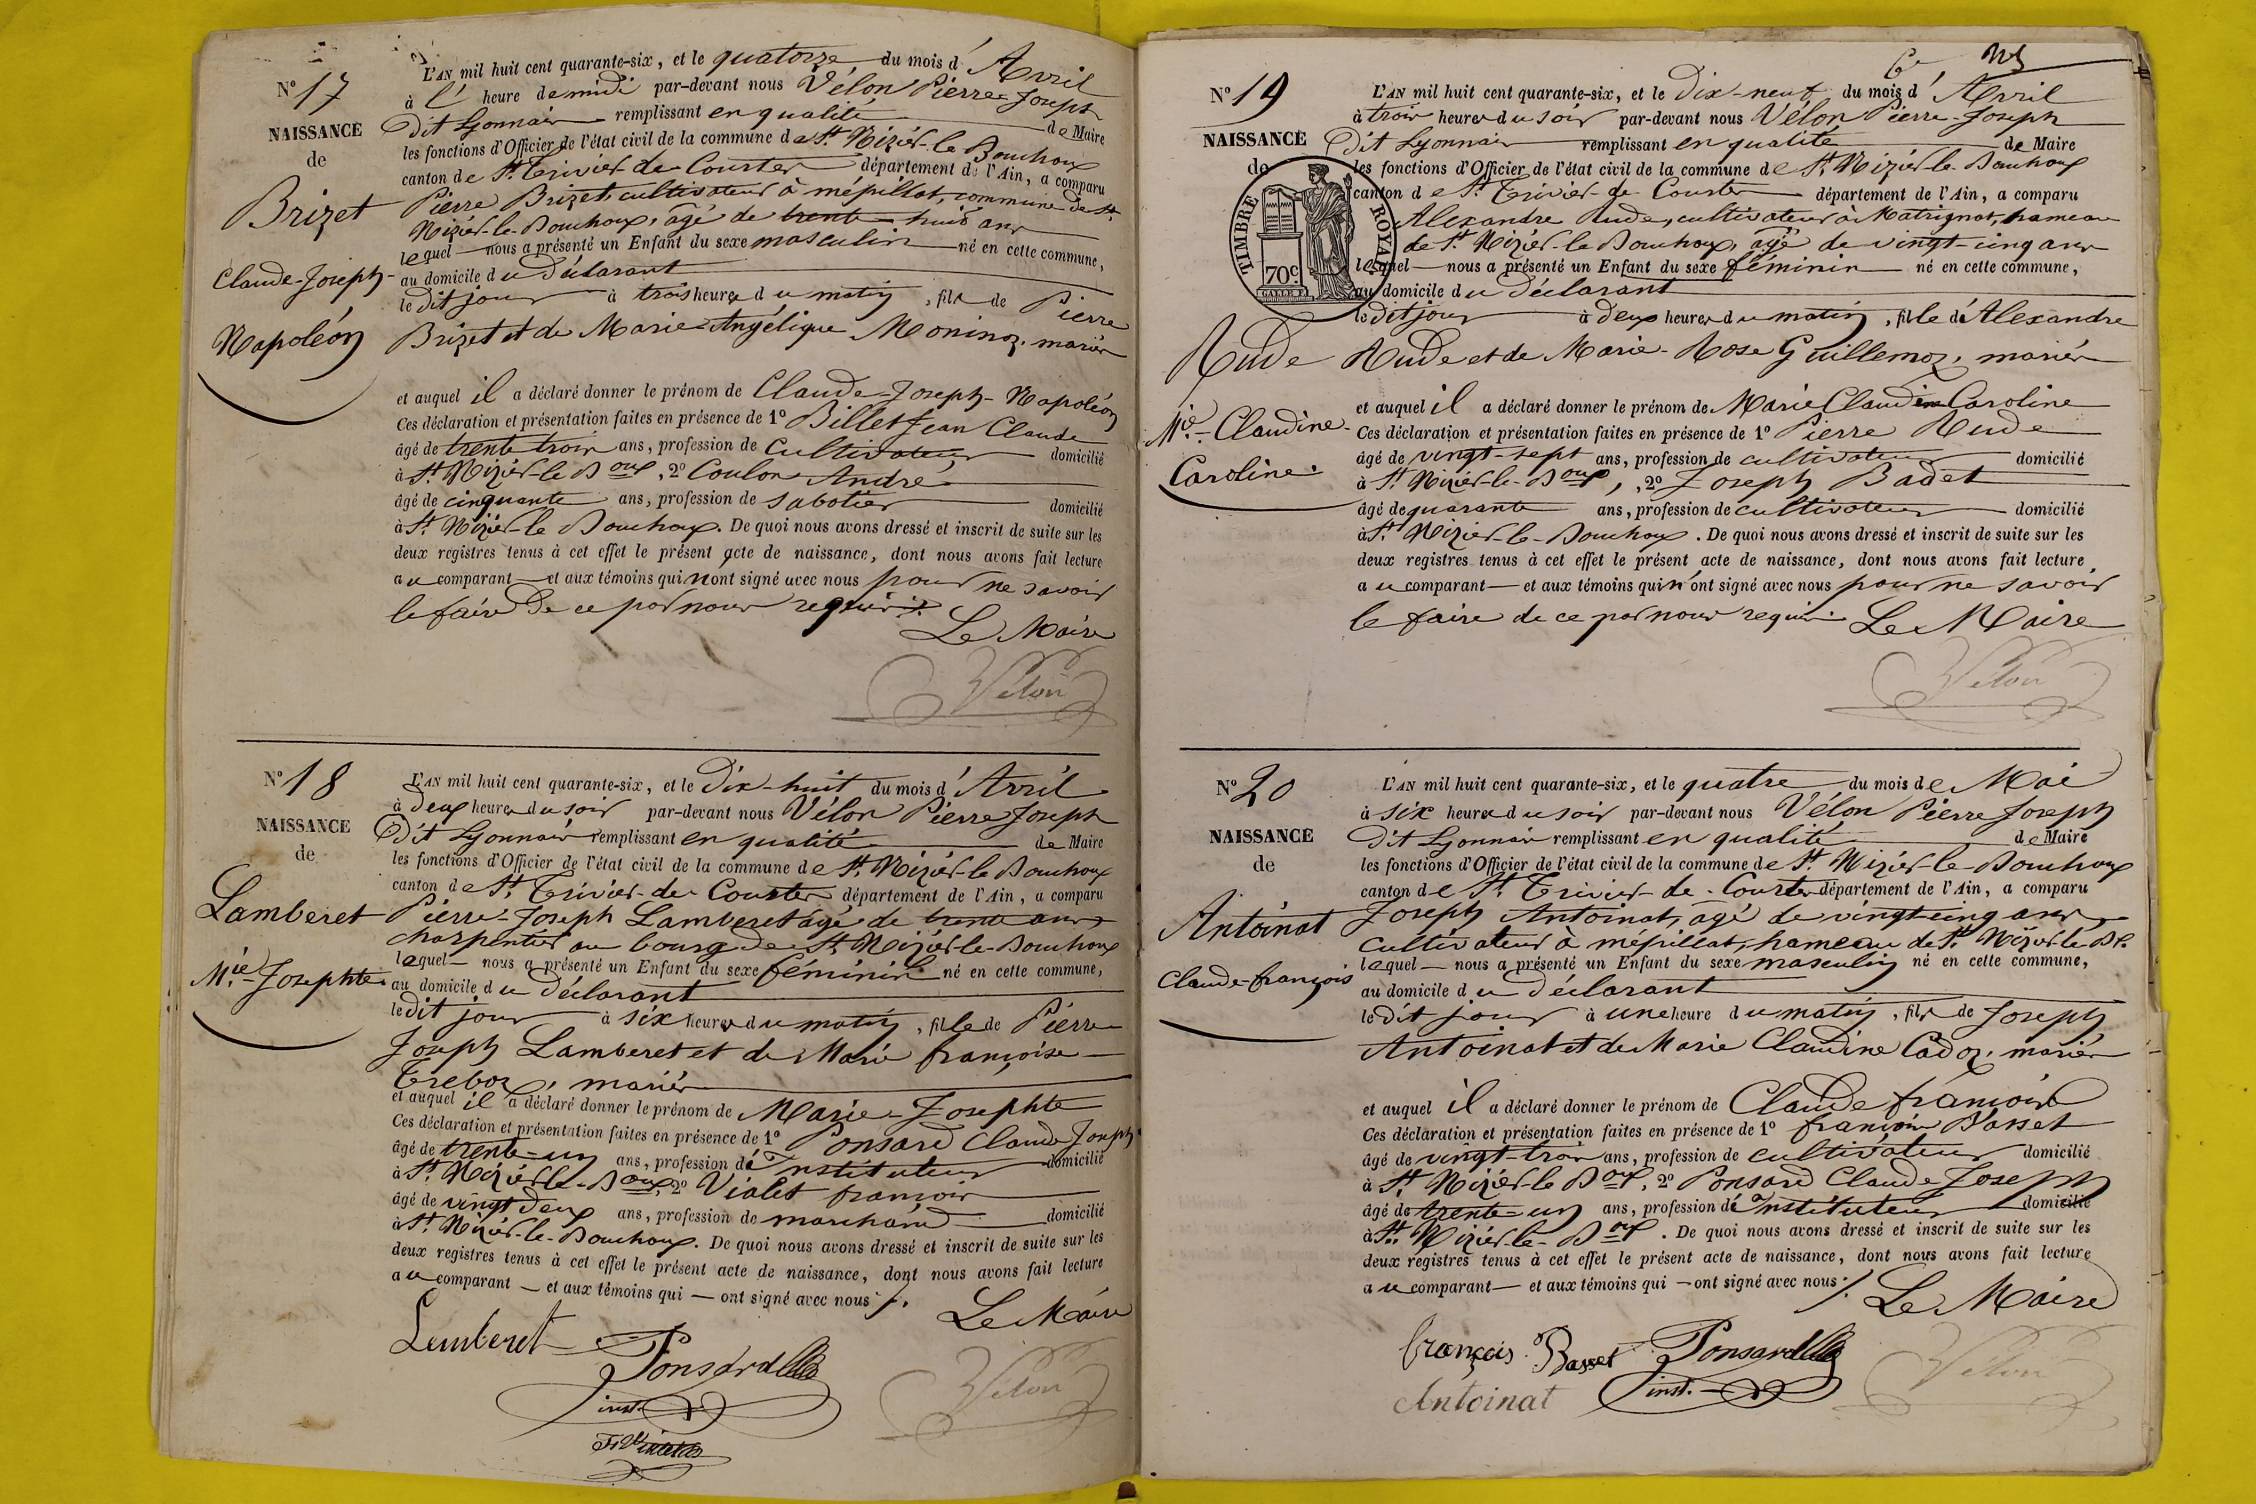 N° 17
NAISSANCE
de
Brizet
Claude-Joseph-
Napoléon
L'AN mil huit cent quarante-six, et le quatorze du mois d'Avril
à l' heure de midi par-devant nous Vélon Pierre-Joseph
Dit Lyonnais remplissant en qualité de Maire
les fonctions d'Officier de l'état civil de la commune de St. Nizier-le Bouchoux
canton de St. Trivier-de Courtes département de l'Ain, a comparu
Pierre Brizet, cultivateur à mépillat, commune de St.
Nizier-le-Bouchoux, âgé de trente-huit ans
lequel nous a présenté un Enfant du sexe masculin né en cette commune,
au domicile du déclarant
le dit jour à trois heures du matin, fils de Pierre
Brizet et de Marie-Angélique Moninoz, mariés
et auquel il a déclaré donner le prénom de Claude-Joseph-Napoléon
Ces déclaration et présentation faites en présence de 1° Billet Jean Claude
âgé de trente trois ans, profession de cultivateur domicilié
à St. Nizier-le Boux, 2° Coulon André
âgé de cinquante ans, profession de sabotier domicilié
à St. Nizier-le Bouchoux. De quoi nous avons dressé et inscrit de suite sur les
deux registres tenus à cet effet le présent acte de naissance, dont nous avons fait lecture
au comparant et aux témoins qui n'ont signé avec nous pour ne savoir
le faire de ce par nous requis.
Le Maire
Vélon
N° 18
NAISSANCE
de
Lamberet
Mie-Josephte
L'AN mil huit cent quarante-six, et le Dix-huit du mois d'Avril
à deux heures du soir par-devant nous Vélon Pierre Joseph
Dit Lyonnais remplissant en qualité de Maire
les fonctions d'Officier de l'état civil de la commune de St. Nizier-le Bouchoux
canton de St. Trivier-de Courtes département de l'Ain, a comparu
Pierre-Joseph Lamberet âgé de trente ans
charpentier au bourg de St. Nizier-le-Bouchoux
lequel nous a présenté un Enfant du sexe féminin né en cette commune,
au domicile du déclarant
le dit jour à six heures du matin, fille de Pierre
Joseph Lamberet et de Marie françoise
Treboz, mariés
et auquel il a déclaré donner le prénom de Marie-Josephte
Ces déclaration et présentation faites en présence de 1° Ponsard Claude Joseph
âgé de trente-un ans, profession d'Instituteur domicilié
à St. Nizier-le-Boux, 2° Violet françois
âgé de vingt deux ans, profession de marchand domicilié
à St. Nizier-le-Bouchoux. De quoi nous avons dressé et inscrit de suite sur les
deux registres tenus à cet effet le présent acte de naissance, dont nous avons fait lecture
au comparant et aux témoins qui ont signé avec nous ./.
Le Maire
Lemberet
Ponsard
inst.
Vélon
N° 19
NAISSANCE
de
TIMBRE ROYAL
70c.
Rude
Mie-Claudine-
Caroline.
L'AN mil huit cent quarante-six, et le Dix-neuf du mois d'Avril
à trois heures du soir par-devant nous Vélon Pierre-Joseph
Dit Lyonnais remplissant en qualité de Maire
les fonctions d'Officier de l'état civil de la commune de St. Nizier-le-Bouchoux
canton de St. Trivier-de Courtes département de l'Ain, a comparu
Alexandre Rude, cultivateur à Matrignat, hameau
de St. Nizier-le Bouchoux, âgé de vingt-cinq ans
lequel nous a présenté un Enfant du sexe féminin né en cette commune,
au domicile du déclarant
le dit jour à deux heures du matin, fille d'Alexandre
Rude et de Marie-Rose Guillemoz, mariés
et auquel il a déclaré donner le prénom de Marie Claudine Caroline
Ces déclaration et présentation faites en présence de 1° Pierre Rude
âgé de vingt-sept ans, profession de cultivateur domicilié
à St. Nizier-le-Boux, 2° Joseph Badet
âgé de quarante ans, profession de cultivateur domicilié
à St. Nizier-le-Bouchoux. De quoi nous avons dressé et inscrit de suite sur les
deux registres tenus à cet effet le présent acte de naissance, dont nous avons fait lecture
au comparant et aux témoins qui n'ont signé avec nous pour ne savoir
le faire de ce par nous requis. Le Maire
Vélon
N° 20
NAISSANCE
de
Antoinat
Claude-françois
L'AN mil huit cent quarante-six, et le quatre du mois de Mai
à six heures du soir par-devant nous Vélon Pierre Joseph
Dit Lyonnais remplissant en qualité de Maire
les fonctions d'Officier de l'état civil de la commune de St. Nizier-le-Bouchoux
canton de St. Trivier-de-Courtes département de l'Ain, a comparu
Joseph Antoinat, âgé de vingt-cinq ans
cultivateur à mépillat, hameau de St. Nizier-le-Bx.
lequel nous a présenté un Enfant du sexe masculin né en cette commune,
au domicile du déclarant
le dit jour à une heure du matin, fils de Joseph
Antoinat et de Marie Claudine Cadoz, mariés
et auquel il a déclaré donner le prénom de Claude françois
Ces déclaration et présentation faites en présence de 1° françois Basset
âgé de vingt-trois ans, profession de cultivateur domicilié
à St. Nizier-le Boux, 2° Ponsard Claude Joseph
âgé de trente-un ans, profession d'Instituteur domicilié
à St. Nizier-le-Boux. De quoi nous avons dressé et inscrit de suite sur les
deux registres tenus à cet effet le présent acte de naissance, dont nous avons fait lecture
au comparant et aux témoins qui ont signé avec nous ./. Le Maire
françois Basset
Ponsard
inst.
Antoinat
Vélon